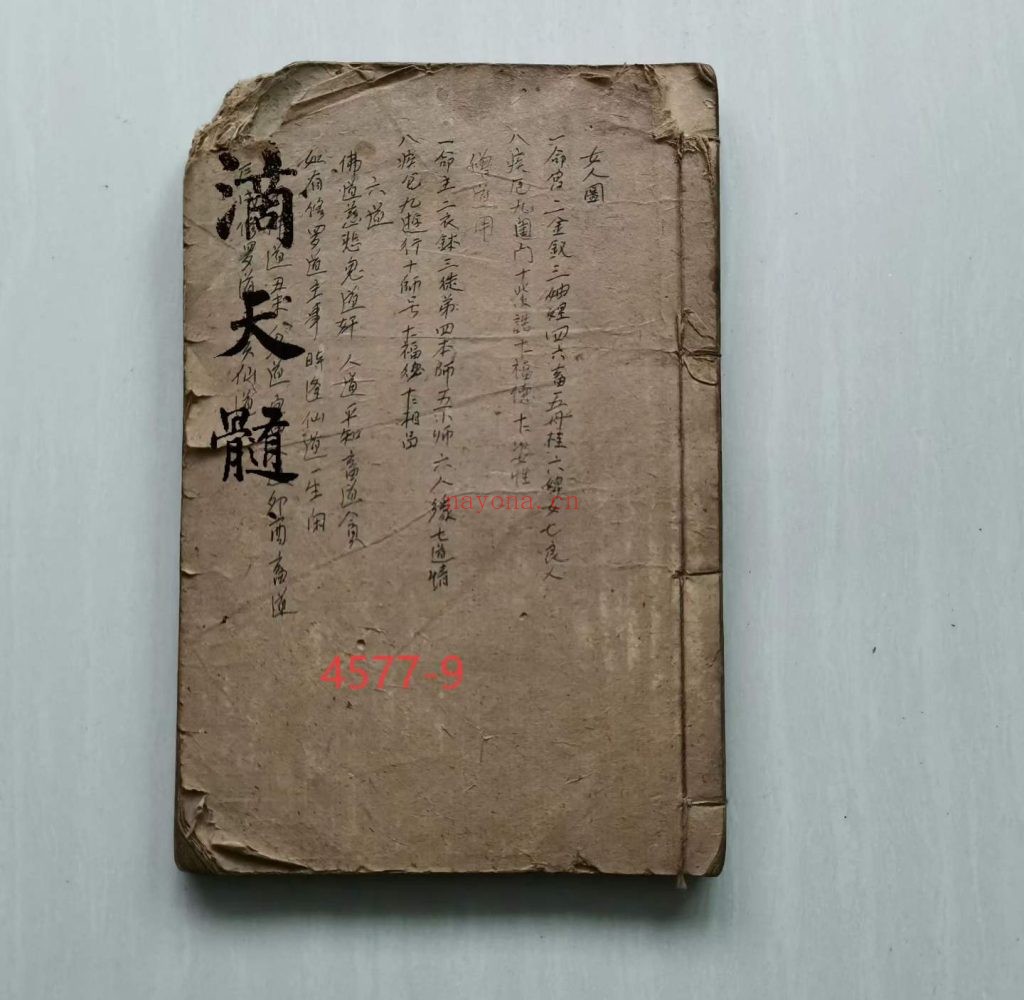 女人圖
一命宮 二金釵三妯娌四六畜五丹桂六婢女七良人
八疾厄九閨門十 誥十一福德十二姿性
僧道用
一命主二衣鉢三徒弟四本師五 师六人緣七道情
八疾厄九遊行十師号十一福德十二相品
六道
佛道慈悲鬼道奸 人道平和畜道貪
如有修罗道主事 時逢仙道一生闲
道丑未 道 卯酉畜道
修罗道 亥仙道
滴天髓
4577-9
nayona.cn